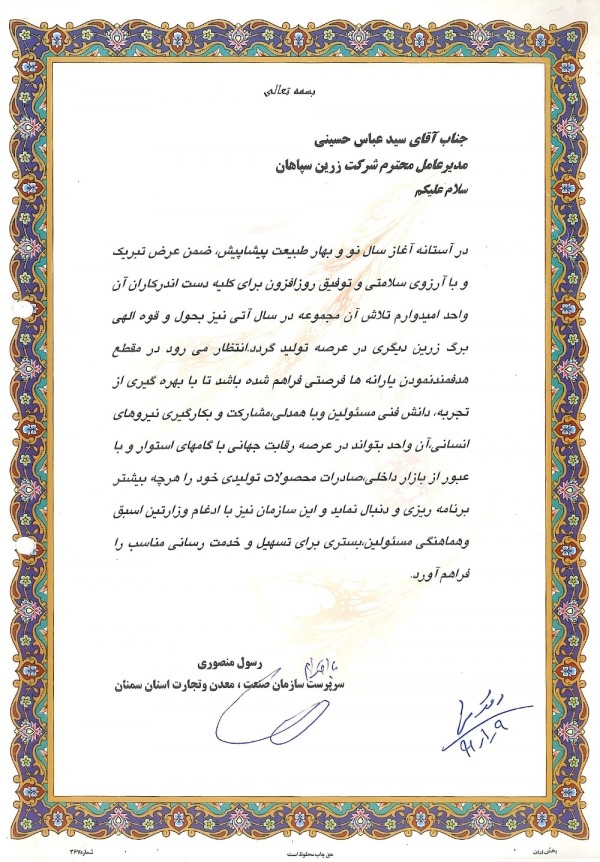 بسمه تعالی
جناب آقای سید عباس حسینی
مدیرعامل محترم شرکت زرین سپاهان
سلام علیکم
در آستانه آغاز سال نو و بهار طبیعت پیشاپیش، ضمن عرض تبریک
و با آرزوی سلامتی و توفیق روزافزون برای کلیه دست اندرکاران آن
واحد امیدوارم تلاش آن مجموعه در سال آتی نیز بحول و قوه الهی
برگ زرین دیگری در عرصه تولید گردد.انتظار می رود در مقطع
هدفمندنمودن یارانه ها فرصتی فراهم شده باشد تا با بهره گیری از
تجربه، دانش فنی مسئولین وبا همدلی،مشارکت و بکارگیری نیروهای
انسانی،آن واحد بتواند در عرصه رقابت جهانی با گامهای استوار و با
عبور از بازار داخلی،صادرات محصولات تولیدی خود را هرچه بیشتر
برنامه ریزی و دنبال نماید و این سازمان نیز با ادغام وزارتین اسبق
وهماهنگی مسئولین،بستری برای تسهیل و خدمت رسانی مناسب را
فراهم آورد.
با احترام
رسول منصوری
سرپرست سازمان صنعت ، معدن وتجارت استان سمنان
پخش زرین
حق چاپ محفوظ است
شماره ۳۶۷